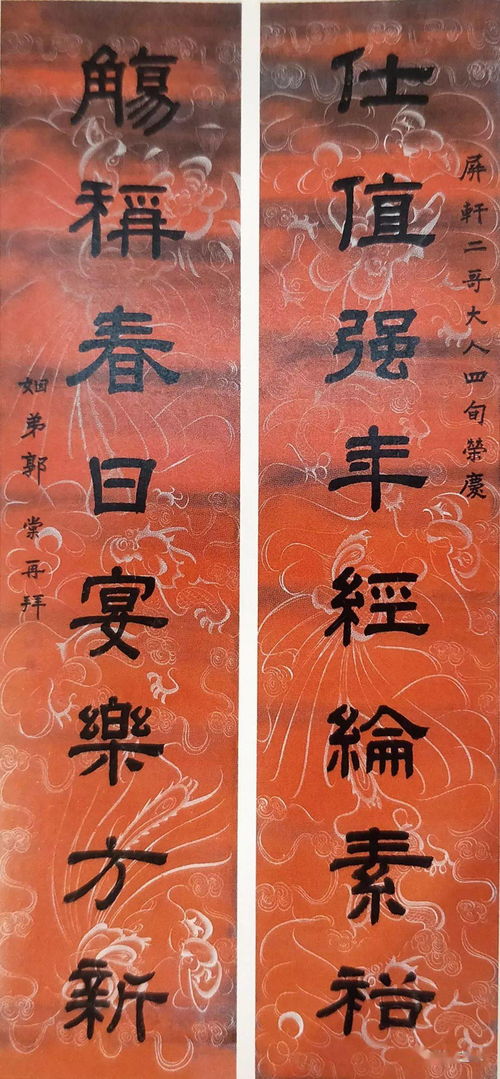 屏軒二哥大人四旬榮慶
仕值强年經綸素裕
觴稱春日宴樂方新
姻弟郭棠再拜